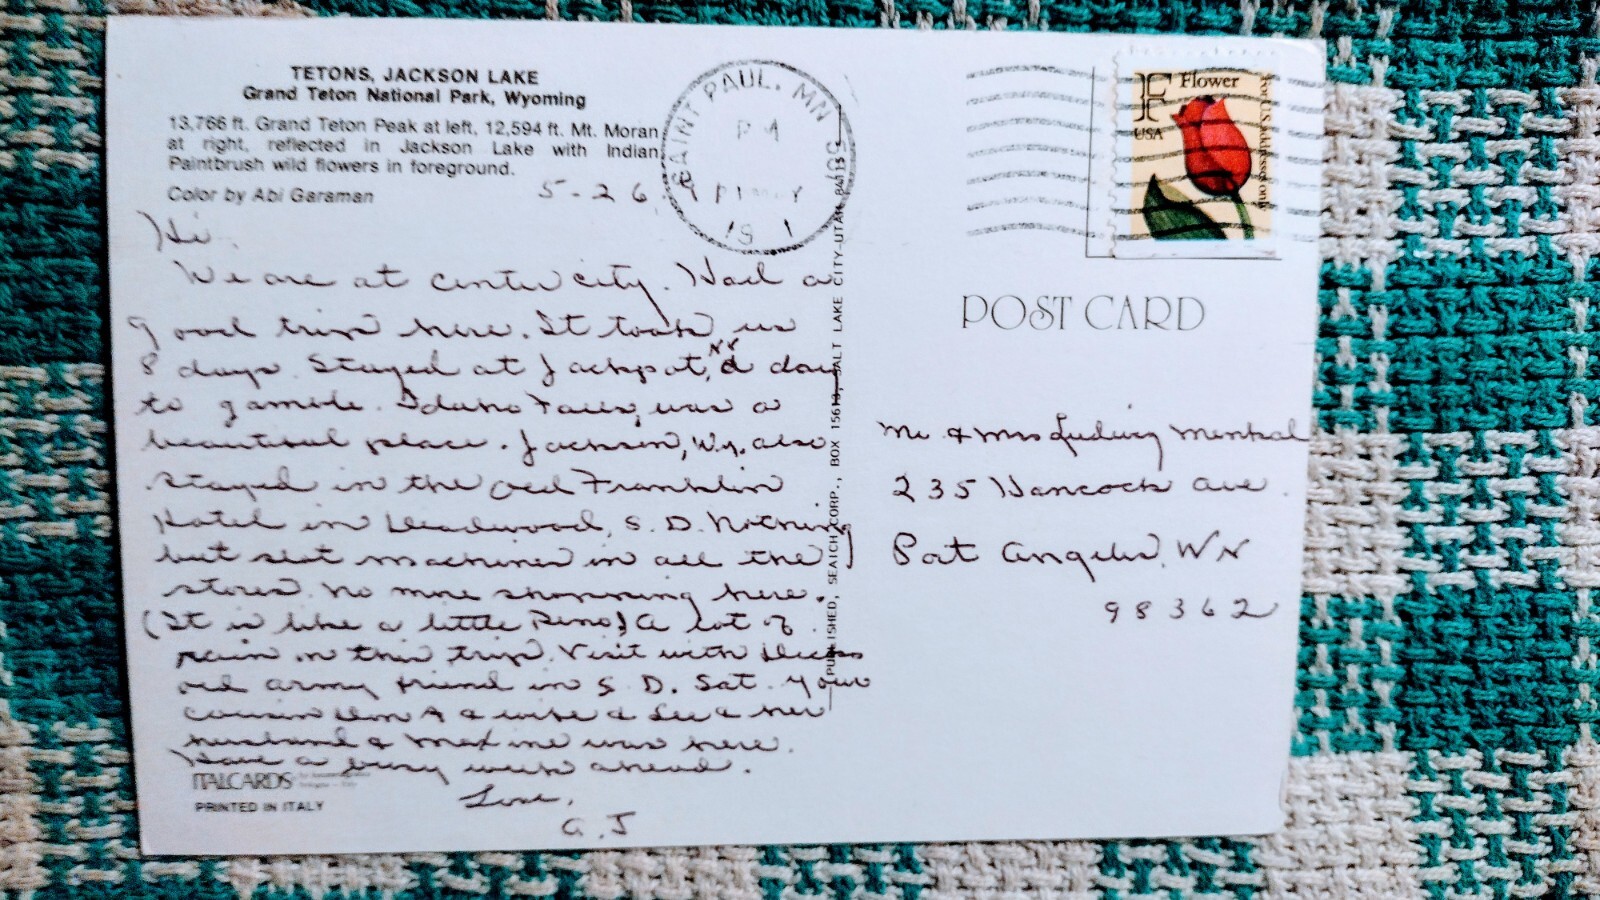 TETONS, JACKSON LAKE
Grand Teton National Park, Wyoming
13,766 ft. Grand Teton Peak at left, 12,594 ft. Mt. Moran
at right, reflected in Jackson Lake with Indian
Paintbrush wild flowers in foreground.
Color by Abi Garaman
5-26
Hi.
We are at center city. Had a
good trip here. It took us
8 days. Stayed at Jackpot, NV a day
to gamble. Idaho Falls, was a
beautiful place. Jackson, Wy. also
stayed in the old Franklin
Hotel in Deadwood, S. D. Nothing
but slot machines in all the
stores. No more shopping here.
(It is like a little Reno) A lot of
rain on this trip. Visit with
old army friend in S. D. Sat. your
cousin Don A & wife & & her
husband & Maxine was here.
Have a busy week ahead.
Love,
A. J
ITALCARDS
PRINTED IN ITALY
SAINT PAUL, MN
PM
19 1
PUBLISHED, SEAICH CORP., BOX 15613, SALT LAKE CITY-UTAH 84115
F
Flower
USA
For U.S. addresses only
POST CARD
Mr & Mrs Ludwig
235 Hancock Ave.
Port Angeles, WN
98362